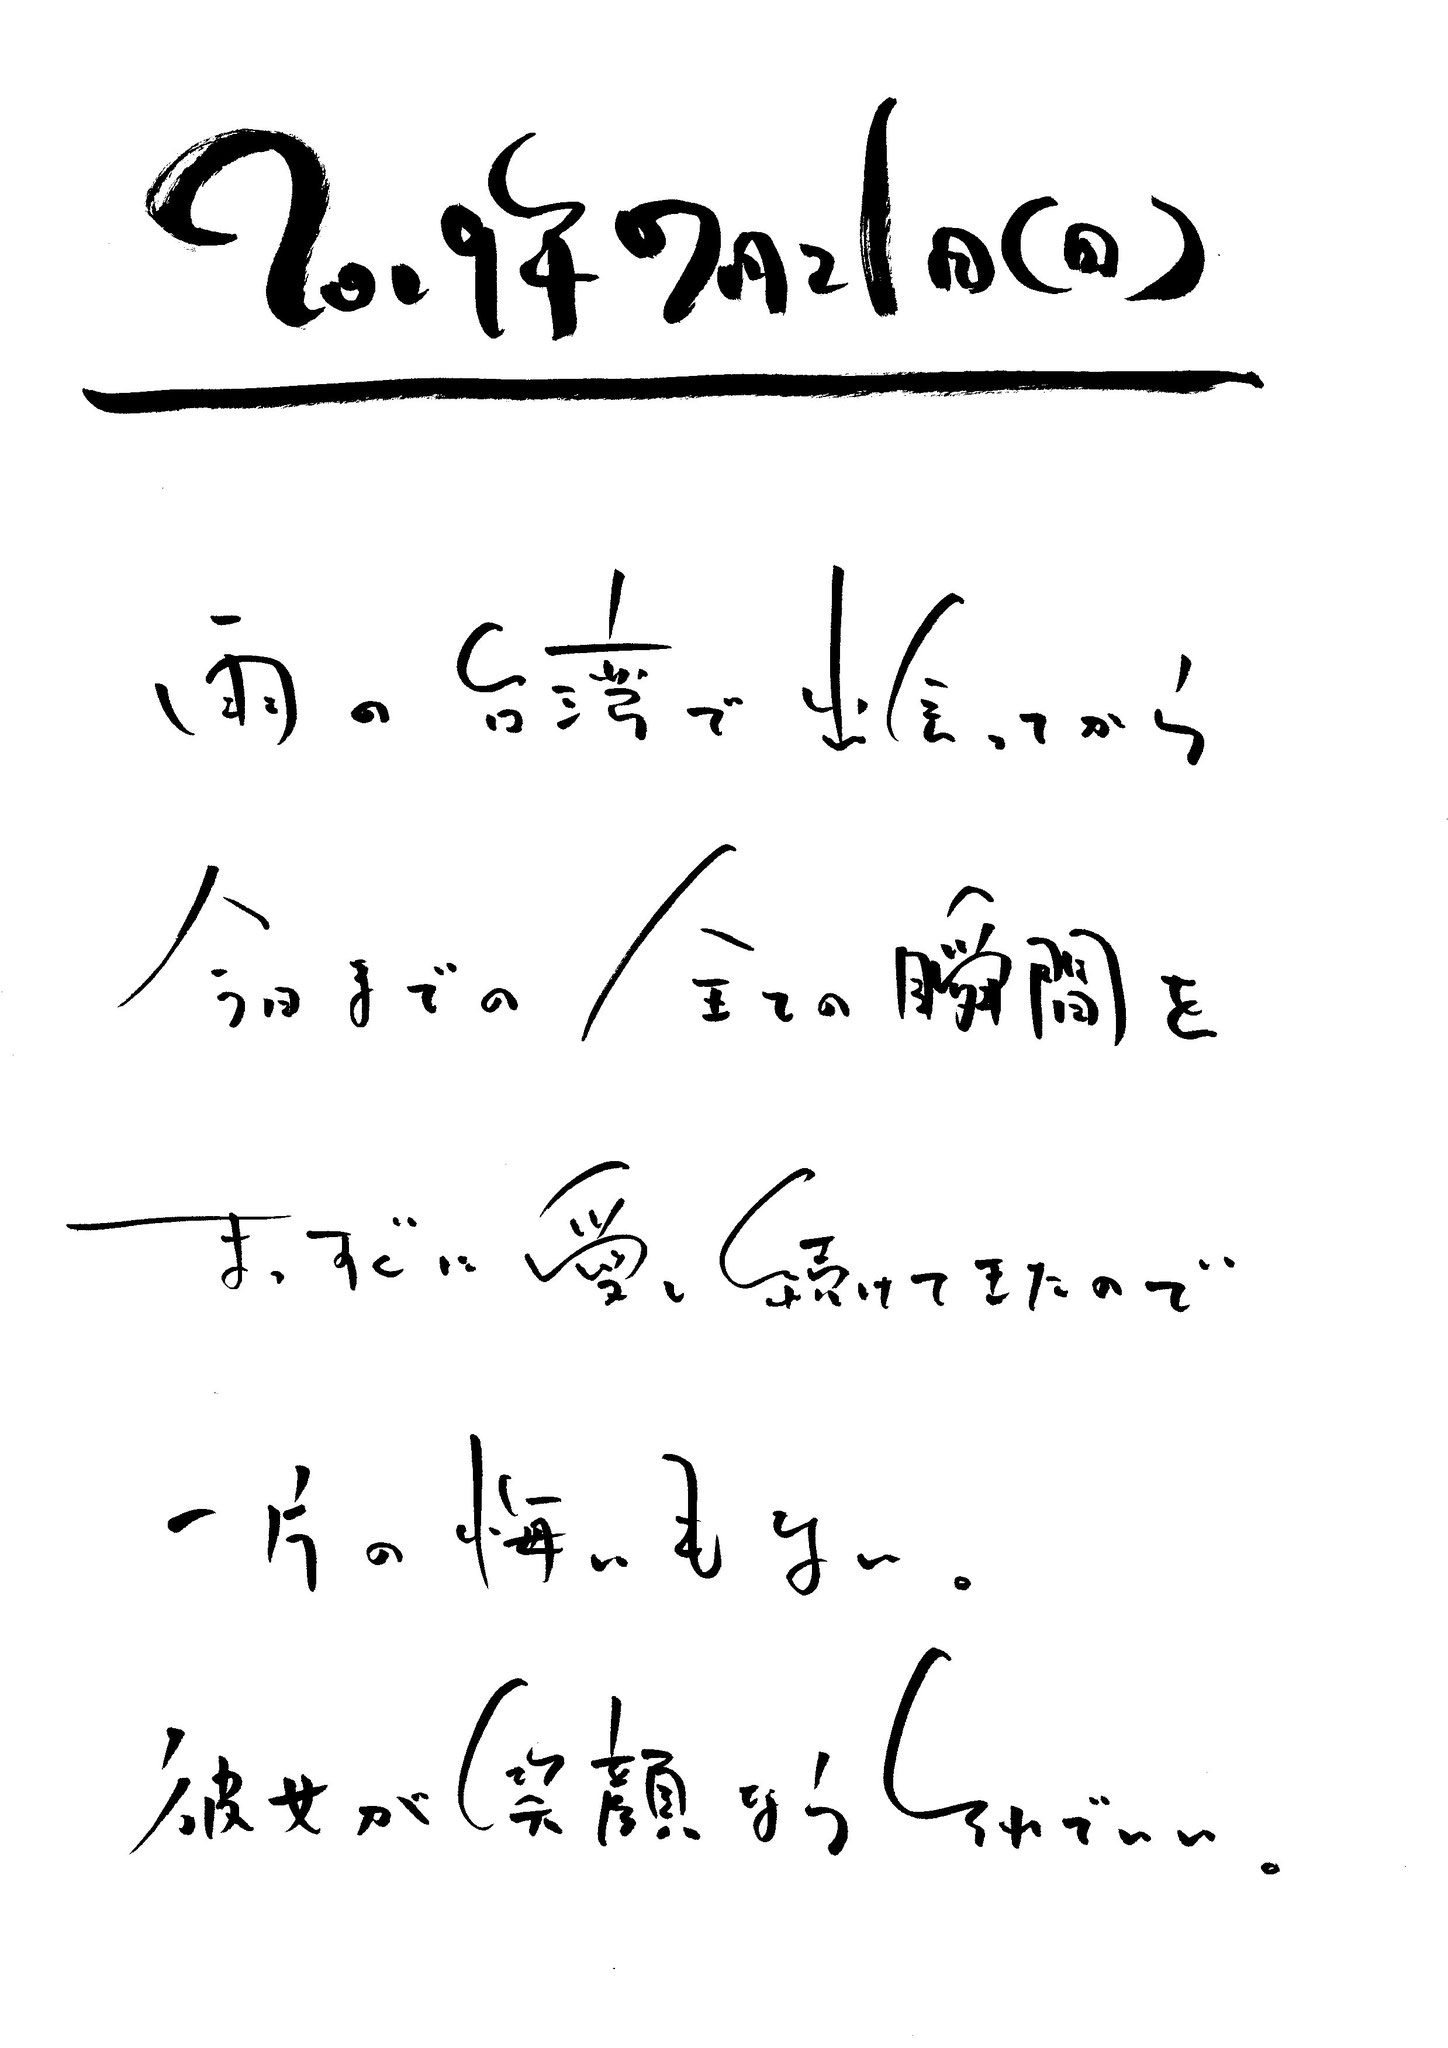 2019年7月21日(日)
雨の台湾で出会ってから
今日までの全ての瞬間を
まっすぐに愛し続けてきたので
一片の悔いもない。
彼女が笑顔ならそれでいい。